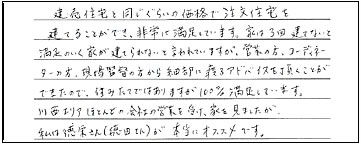 建売住宅と同じぐらいの価格で注文住宅を
建てることができ、非常に満足しています。家は3回建てないと
満足のいく家が建てられないと言われていますが、営業の方、コーディネー
ターの方、現場監督の方から細部に渡るアドバイスを頂くことが
できたので、住みたてではありますが100%満足しています。
川西エリアほとんどの会社の営業を受け、家を見ましたが、
私は徳栄さん(徳田さん)が本当にオススメです。